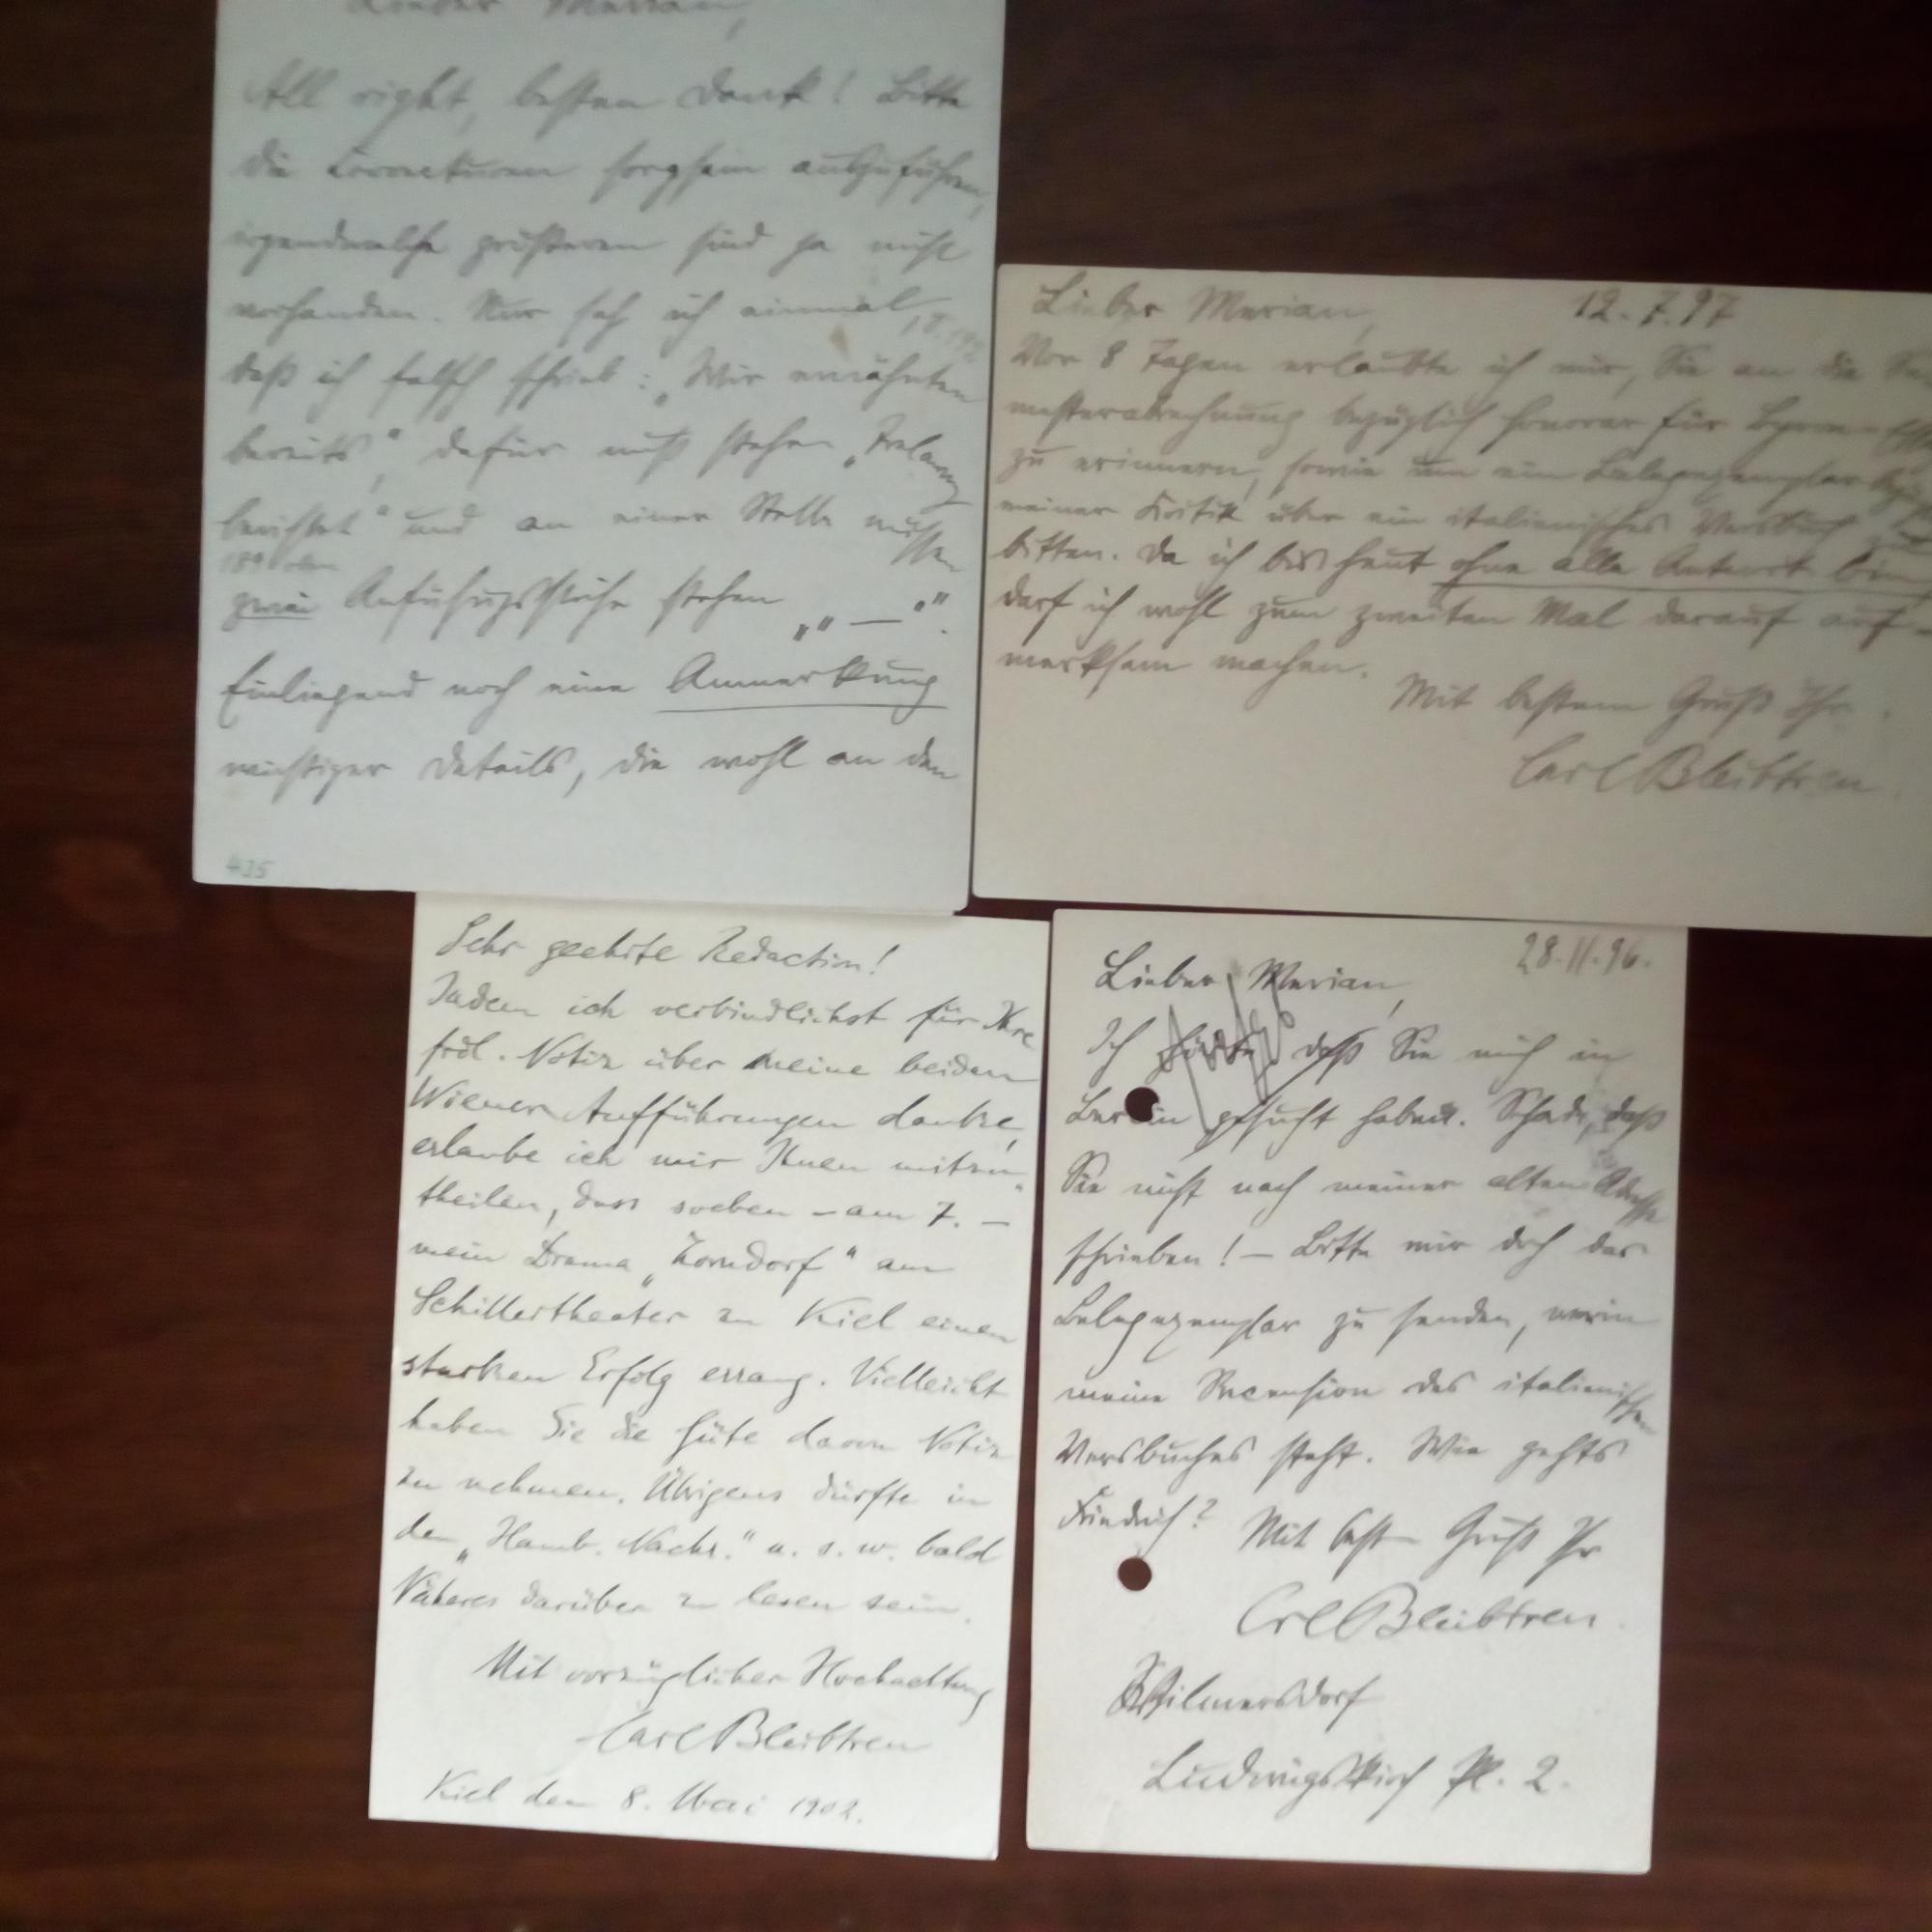 Lieber Merian,
All right, besten Dank! Bitte
die Correcturen sorgsam auszuführen,
irgendwelche grösseren sind ja nicht
vorhanden. Nur sah ich einmal,
daß ich falsch schrieb: „Wir erwähnten
bereits“, dafür muß stehen
berichtet“ und an einer Stelle müssen
zwei Anführungsstriche stehen „„ — “”.
Einliegend noch eine Anmerkung
wichtiger Details, die wohl an den
435
Lieber Merian, 12.7.97
Vor 8 Tagen erlaubte ich mir, Sie an die Se-
mesterabrechnung bezüglich Honorar für Byron-
zu erinnern, sowie um ein Belegexemplar
meiner Kritik über ein italienisches Versbuch zu
bitten. Da ich bis heut ohne alle Antwort bin,
darf ich wohl zum zweiten Mal darauf auf-
merksam machen.
Mit bestem Gruß Ihr
Carl Bleibtreu.
Sehr geehrte Redaction!
Indem ich verbindlichst für Ihre
frdl. Notiz über meine beiden
Wiener Aufführungen danke,
erlaube ich mir Ihnen mitzu-
theilen, dass soeben – am 7. –
mein Drama „Zorndorf“ am
Schillertheater zu Kiel einen
starken Erfolg errang. Vielleicht
haben Sie die Güte davon Notiz
zu nehmen. Übrigens dürfte in
den „Hamb. Nachr.“ u. s. w. bald
Näheres darüber zu lesen sein.
Mit vorzüglicher Hochachtung
Carl Bleibtreu
Kiel den 8. Mai 1902.
28.11.96.
Lieber Merian,
Ich hörte, daß Sie mich in
Berlin gesucht haben. Schade, daß
Sie nicht nach meiner alten Adresse
schrieben! – Bitte mir doch das
Belegexemplar zu senden, worin
meine Recension des italienischen
Versbuches steht. Wie gehts
Friedrich? Mit best Gruß Ihr
Carl Bleibtreu.
Wilmersdorf
Ludwigskirch Pl. 2.